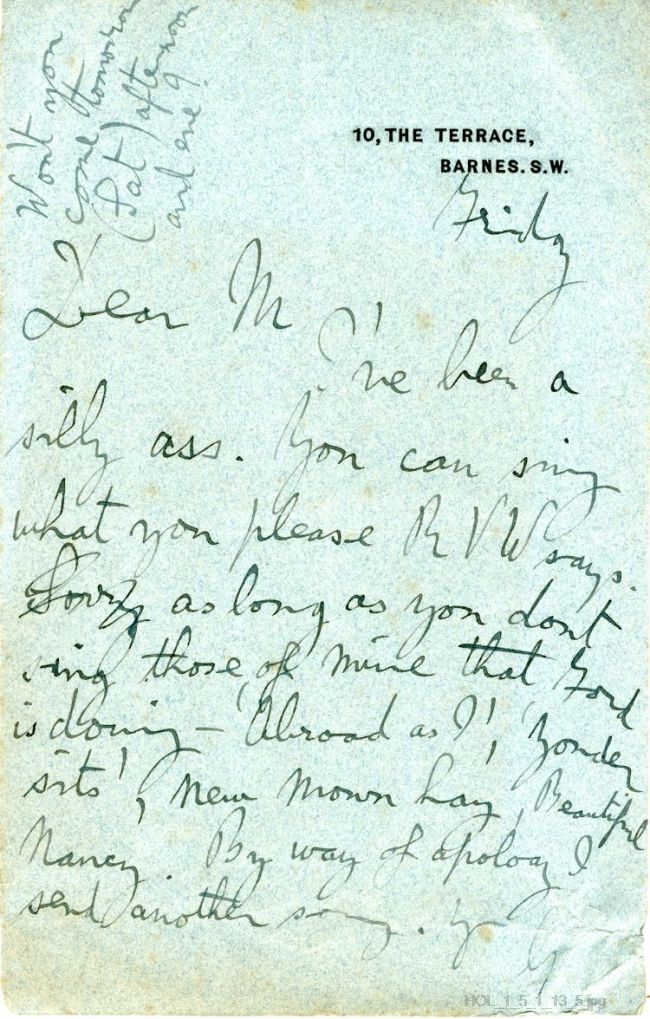 Won't you
come tomorrow
(Sat) afternoon
and eve?
10, THE TERRACE,
BARNES. S.W.
Friday
Dear M
I've been a
silly ass. You can sing
what you please R V W says.
Sorry as long as you dont
sing those of mine that Ford
is doing – 'Abroad as I', 'Yonder
sits', New Mown hay, Beautiful
Nancy. By way of apology I
send another song. Yr G
HOL_1_5_1_13_5.jpg